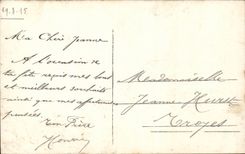 19-8-15
Ma Chère Jeanne
A l'occasion de
ta fête reçois mes bons
et meilleurs souhaits
ainsi que mes affectueuses
pensées.
Ton Frère
Henri
Mademoiselle
Jeanne
Troyes